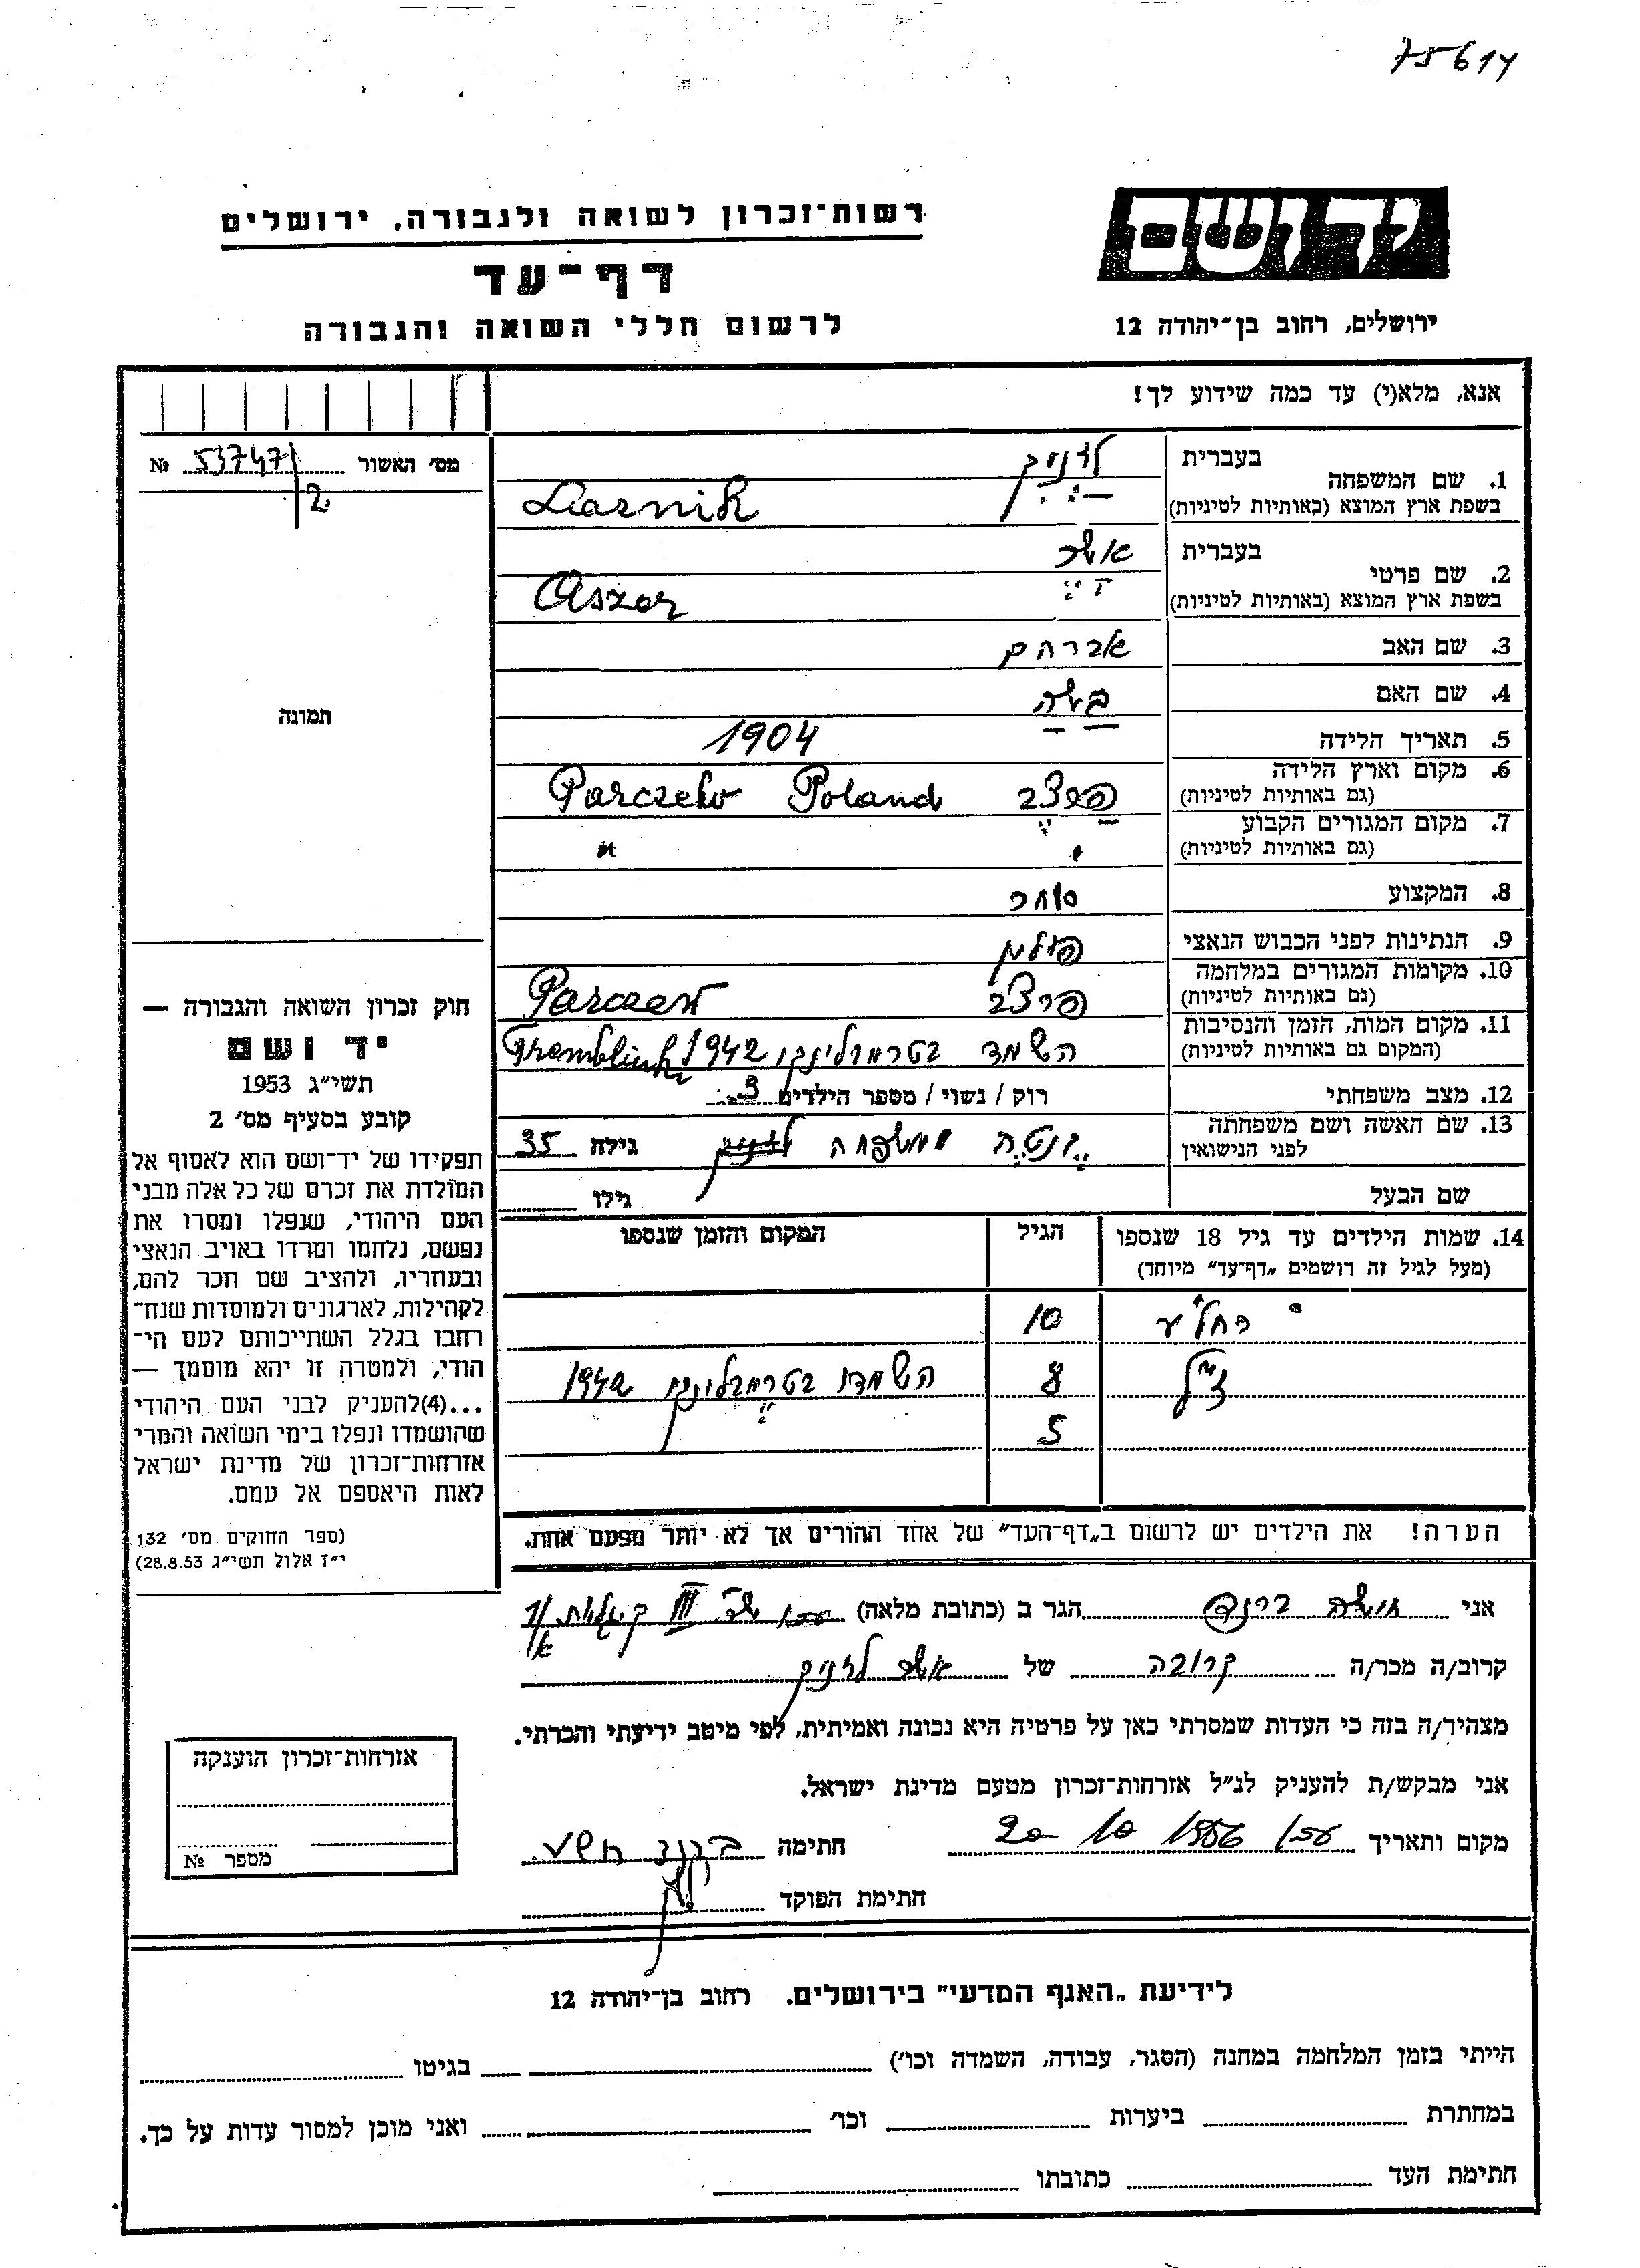 75614
יד ושם
רשות־זכרון לשואה ולגבורה, ירושלים
דף־עד
לרשום חללי השואה והגבורה
ירושלים, רחוב בן־יהודה 12
אנא, מלא(י) עד כמה שידוע לך!
מס' האשור 53747/2 №
1. שם המשפחה
בעברית
בשפת ארץ המוצא (באותיות לטיניות)
Laznik
2. שם פרטי
בעברית אשר
בשפת ארץ המוצא (באותיות לטיניות) Aszer
3. שם האב אברהם
4. שם האם בשה
5. תאריך הלידה 1904
6. מקום וארץ הלידה
(גם באותיות לטיניות) פרצב Parczew Poland
7. מקום המגורים הקבוע
(גם באותיות לטיניות) " "
8. המקצוע סוחר
9. הנתינות לפני הכבוש הנאצי פולין
10. מקומות המגורים במלחמה
(גם באותיות לטיניות) פרצב Parczew
11. מקום המות, הזמן והנסיבות
(המקום גם באותיות לטיניות) השמד בטרמבלינקי 1942 Tremblinki
12. מצב משפחתי רוק / נשוי / מספר הילדים 3
13. שם האשה ושם משפחתה
לפני הנישואין
ממשפחה גילה 35
שם הבעל גילו
14. שמות הילדים עד גיל 18 שנספו
(מעל לגיל זה רושמים „דף־עד" מיוחד)
הגיל
המקום והזמן שנספו
10
8 השמדו בטרמבלינקי 1942
5
הערה! את הילדים יש לרשום ב„דף־העד" של אחד ההורים אך לא יותר מפעם אחת.
תמונה
חוק זכרון השואה והגבורה —
יד ושם
תשי״ג 1953
קובע בסעיף מס' 2
תפקידו של יד־ושם הוא לאסוף אל
המולדת את זכרם של כל אלה מבני
העם היהודי, שנפלו ומסרו את
נפשם, נלחמו ומרדו באויב הנאצי
ובעוזריו, ולהציב שם וזכר להם,
לקהילות, לארגונים ולמוסדות שנח־
רחבו בגלל השתייכותם לעם הי־
הודי, ולמטרה זו יהא מוסמך —
...(4)להעניק לבני העם היהודי
שהושמדו ונפלו בימי השואה והמרי
אזרחות־זכרון של מדינת ישראל
לאות היאספם אל עמם.
(ספר החוקים מס' 132
י״ז אלול תשי״ג 28.8.53)
אני ברנד הגר ב (כתובת מלאה)
קרוב/ה מכר/ה קרובה של אשר
מצהיר/ה בזה כי העדות שמסרתי כאן על פרטיה היא נכונה ואמיתית, לפי מיטב ידיעתי והכרתי.
אני מבקש/ת להעניק לנ״ל אזרחות־זכרון מטעם מדינת ישראל.
מקום ותאריך 20 10 1956 חתימה
חתימת הפוקד
אזרחות־זכרון הוענקה
מספר №
לידיעת „האגף המדעי" בירושלים. רחוב בן־יהודה 12
הייתי בזמן המלחמה במחנה (הסגר, עבודה, השמדה וכו') בגיטו
במחתרת ביערות וכו' ואני מוכן למסור עדות על כך.
חתימת העד כתובתו